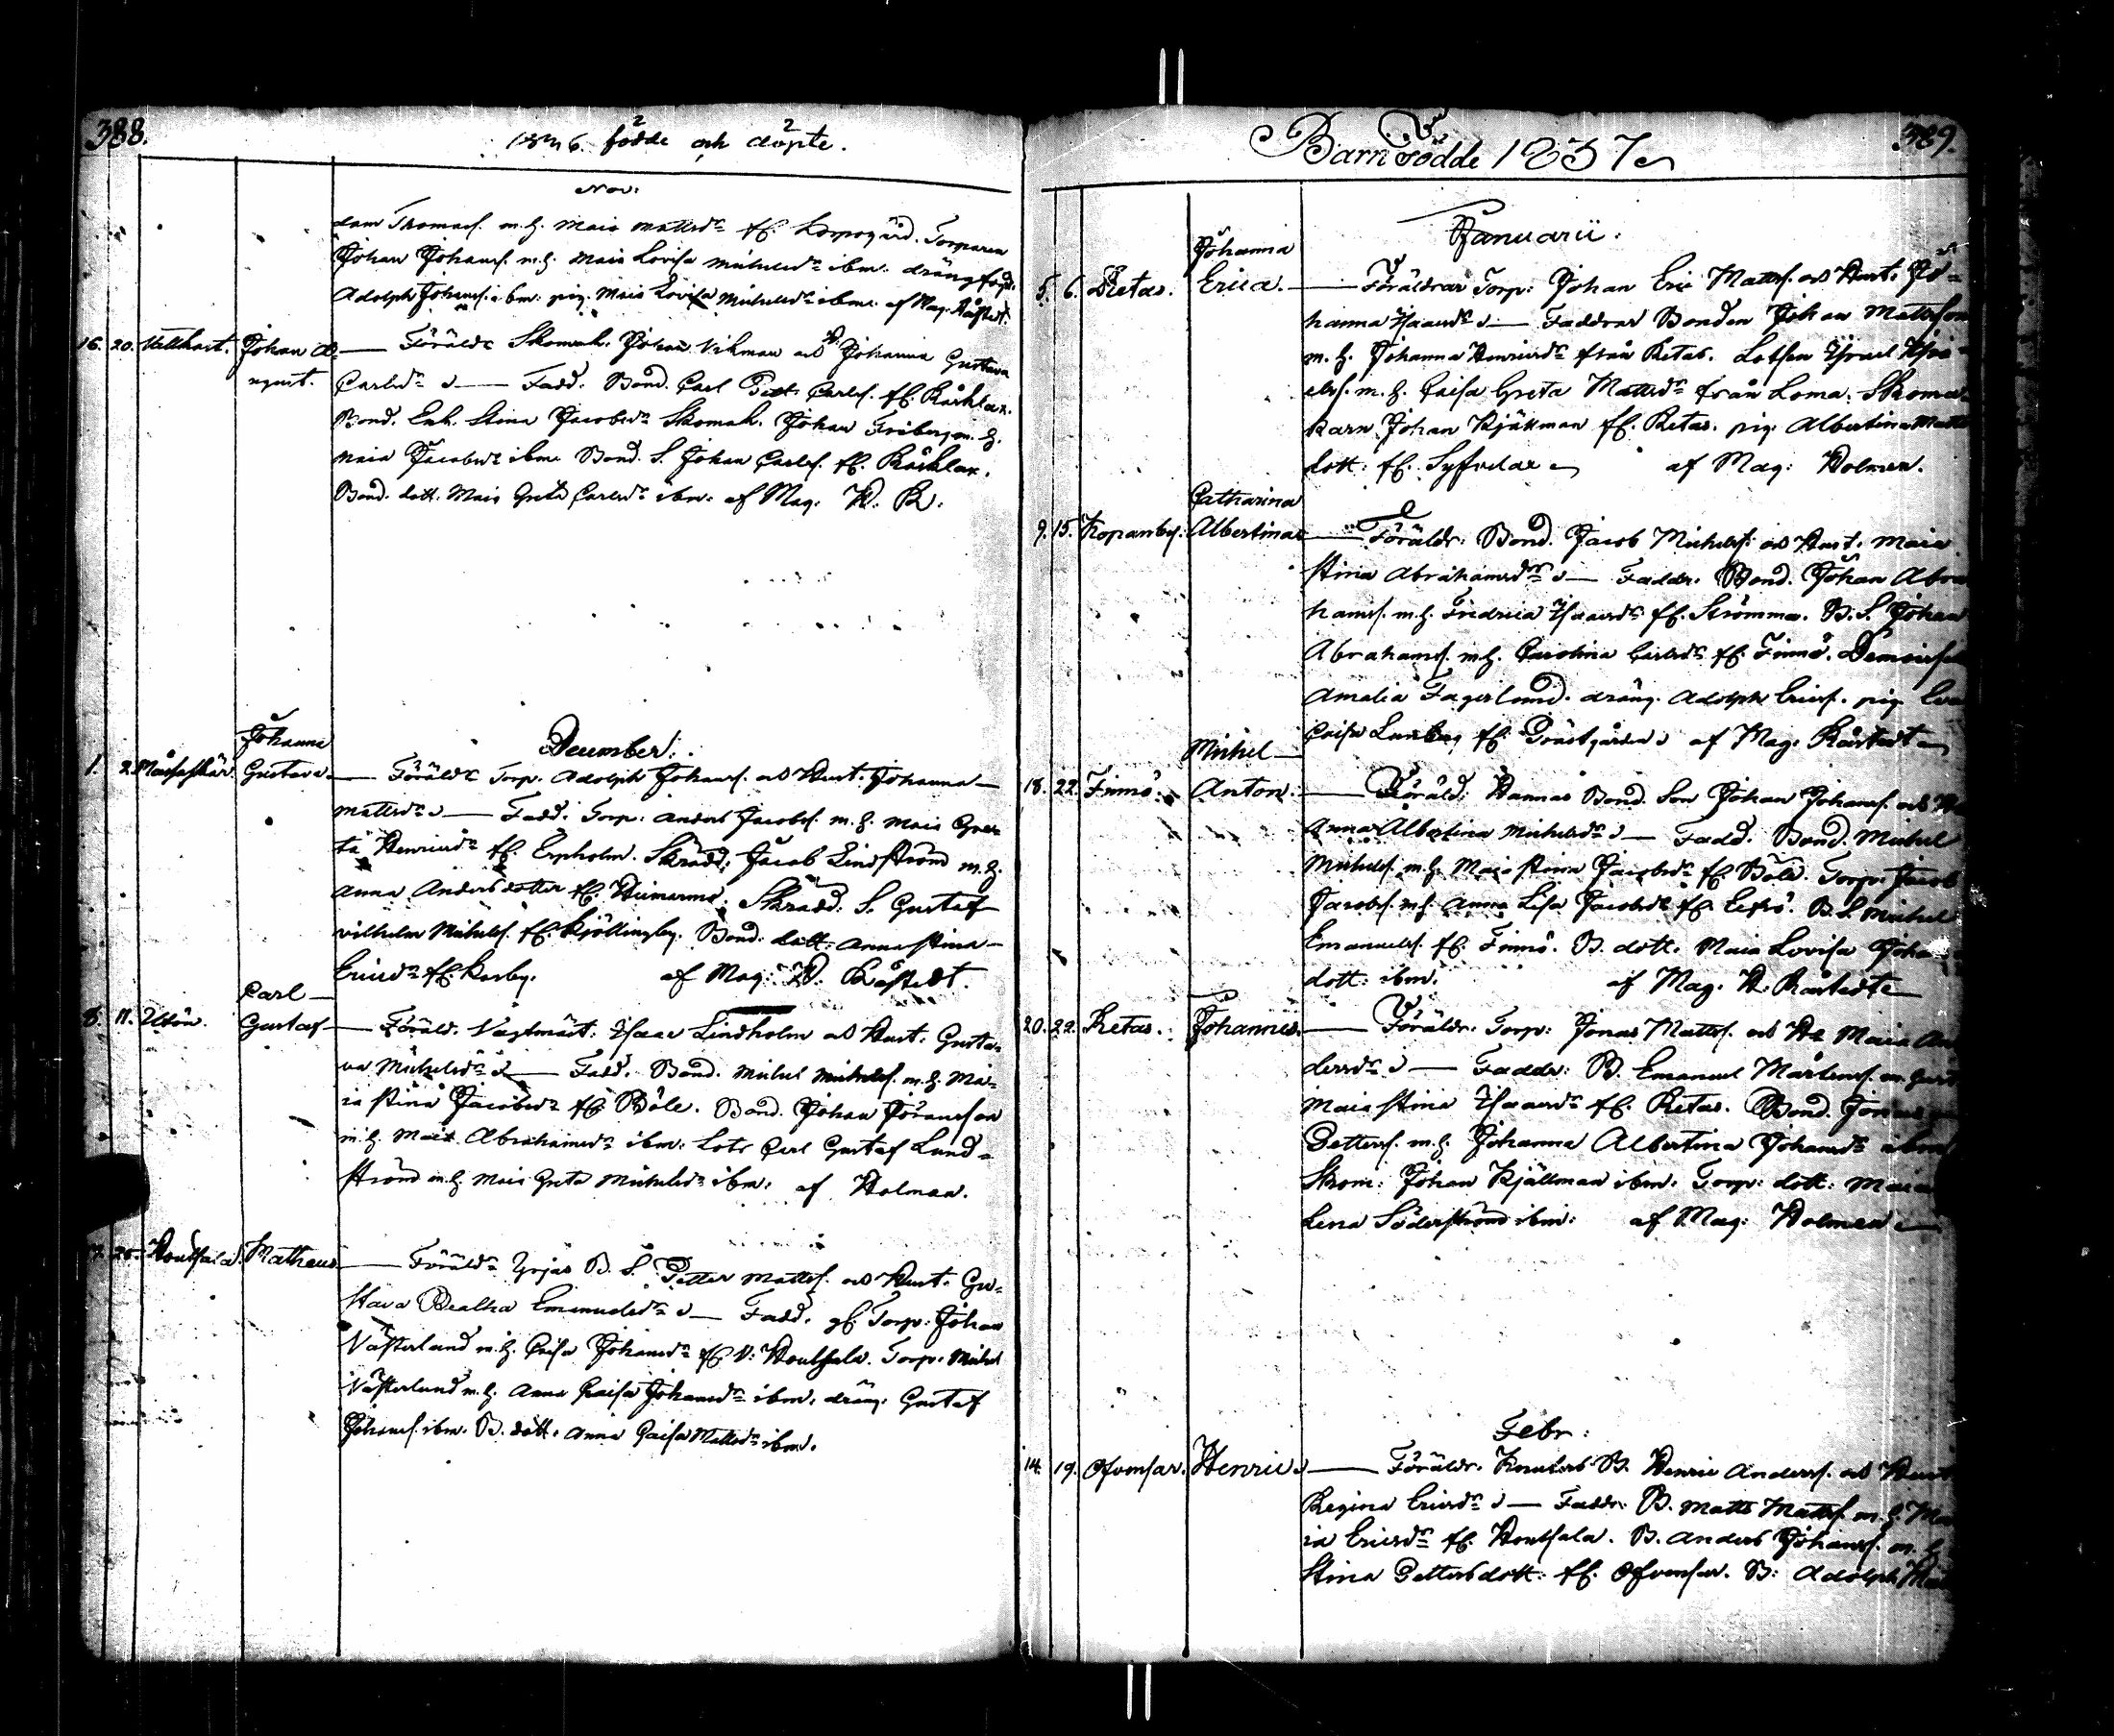 388.
1836 födde och döpte.
Nov:
dam Thomass. m. h. Maia Mattsdr fr. Korpogård. Torparen
Johan Johanss. m. h. Maia Lovisa Michelsdr ibm. dräng
Adolph Johanss. ibm. pig. Maia Lovisa Michelsdr ibm. af Mag. Råstedt.
16. 20. Johan A — Föräldr Skomak. Johan Vikman och H Johanna Gustava
ugust. Carlsdr — Fadd. Bond. Carl Pett. Carlss. fr.
Bond. Enk. Stina Jacobsdr Skomak. Johan Friberg m. h.
Maia Jacobsdr ibm. Bond. S. Johan Carlss. fr.
Bond. dott. Maia Greta Carlsdr ibm. af Mag. H. R.
December.
Johanna
1. 2. Gustava — Föräldr Torp. Adolph Johanss. och Hust. Johanna
Mattsdr — Fadd. Torp. Anders Jacobss. m. h. Maia Gre-
ta Henricsdr fr. Erpholm. Skrädd. Jacob Lindström m. h.
Anna Andersdotter fr. Skrädd. S. Gustaf
Vilhelm Michelss. fr. Kjöllingby. Bond. dott. Anna Stina
Ericsdr fr. af Mag: H. Råstedt.
Carl
8. 11. Utön. Gustaf — Föräld. Isaac Lindholm och Hust. Gusta-
va Michelsdr — Fadd. Bond. Michel Michelss. m. h. Ma-
ia Stina Jacobsdr fr. Böle. Bond. Johan Göransson
m. h. Maia Abrahamsdr ibm. Lots Carl Gustaf Lund-
ström m. h. Maia Greta Michelsdr ibm. af Holman.
25. Houtsala. Matheus — Föräldr Yrjas B. S. Petter Mattss. och Hust. Gu-
stava Emanuelsdr — Fadd. Torp. Johan
Västerlund m. h. Caisa Johansdr fr. V. Houtsala. Torp. Michel
Västerlund m. h. Anna Caisa Johansdr ibm. dräng. Gustaf
Johanss. ibm. B. dott. Anna Caisa Mattsdr ibm.
Barn Födde 1837
389.
Januarii.
Johanna
5. 6. Retas. Erica. — Föräldrar Torp: Johan Eric Mattss. och Hust. Jo-
hanna Isaacsdr — Faddrar Bonden Johan Mattsson
m. h. Johanna Henricsdr från Retas. Lotsen Israel Isra-
elss. m. h. Caisa Greta Mattsdr från Loma. Skoma-
karn Johan Kjällman fr. Retas. pig. Albertina Matts
dott: fr. af Mag: Holmen.
Catharina
9. 15. Albertina — Föräldr: Bond. Jacob Michelss: och Hust. Maia
Stina Abrahamsdr — Faddr. Bond. Johan Abra
hamss. m. h. Fredrica Isaacsdr fr. Strömma. B. S. Johan
Abrahamss. m. h. Carolina Carlsdr fr. Finnö.
Amalia Fagerlund. dräng. Adolph Ericss. pig. Eva
Caisa fr. Prästgården af Mag. Råstedt
Michel
18. 22. Finnö. Anton. — Föräld: Hannas Bond. Son Johan Johanss. och H
Anna Albertina Michelsdr — Fadd. Bond. Michel
Michelss. m. h. Maia Stina Jacobsdr fr. Böle. Torp. Jacob
Jacobss. m. h. Anna Lisa Jacobsdr fr. B. S. Michel
Emanuelss. fr. Finnö. B. dott. Maia Lovisa Joha
dott: ibm. af Mag. H. Råstedt
20. 22. Retas. Johannes. — Föräldr. Torp: Jonas Mattss. och H Maia An
dersdr — Faddr: B. Emanuel Mårtenss. m. hust
Maia Stina Isaacsdr fr. Retas. Bond. Jonas
Petterss. m. h. Johanna Albertina Johansdr ibm
Skom: Johan Kjällman ibm. Torp: dott: Maia
Lena Söderström ibm: af Mag: Holmen
Febr:
14. 19. Ofvensar. Henric — Föräldr. Knuters B. Henric Anderss. och Hust
Regina Ericsdr — Faddr. B. Matts Mattss. m. h. Ma
ia Ericsdr fr. Houtsala. B. Anders Johanss. m. h
Stina Pettersdott: fr. Ofvensar. B: Adolph